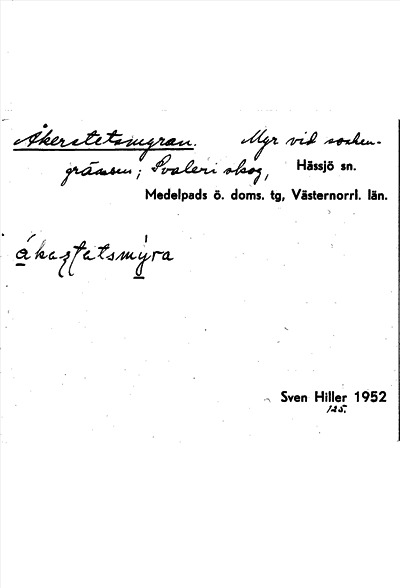 Åkerstetsmyran. Myr vid socken-
gränsen; Svaleri skog, Hässjö sn.
Medelpads ö. doms. tg, Västernorrl. län.
Sven Hiller 1952
125.